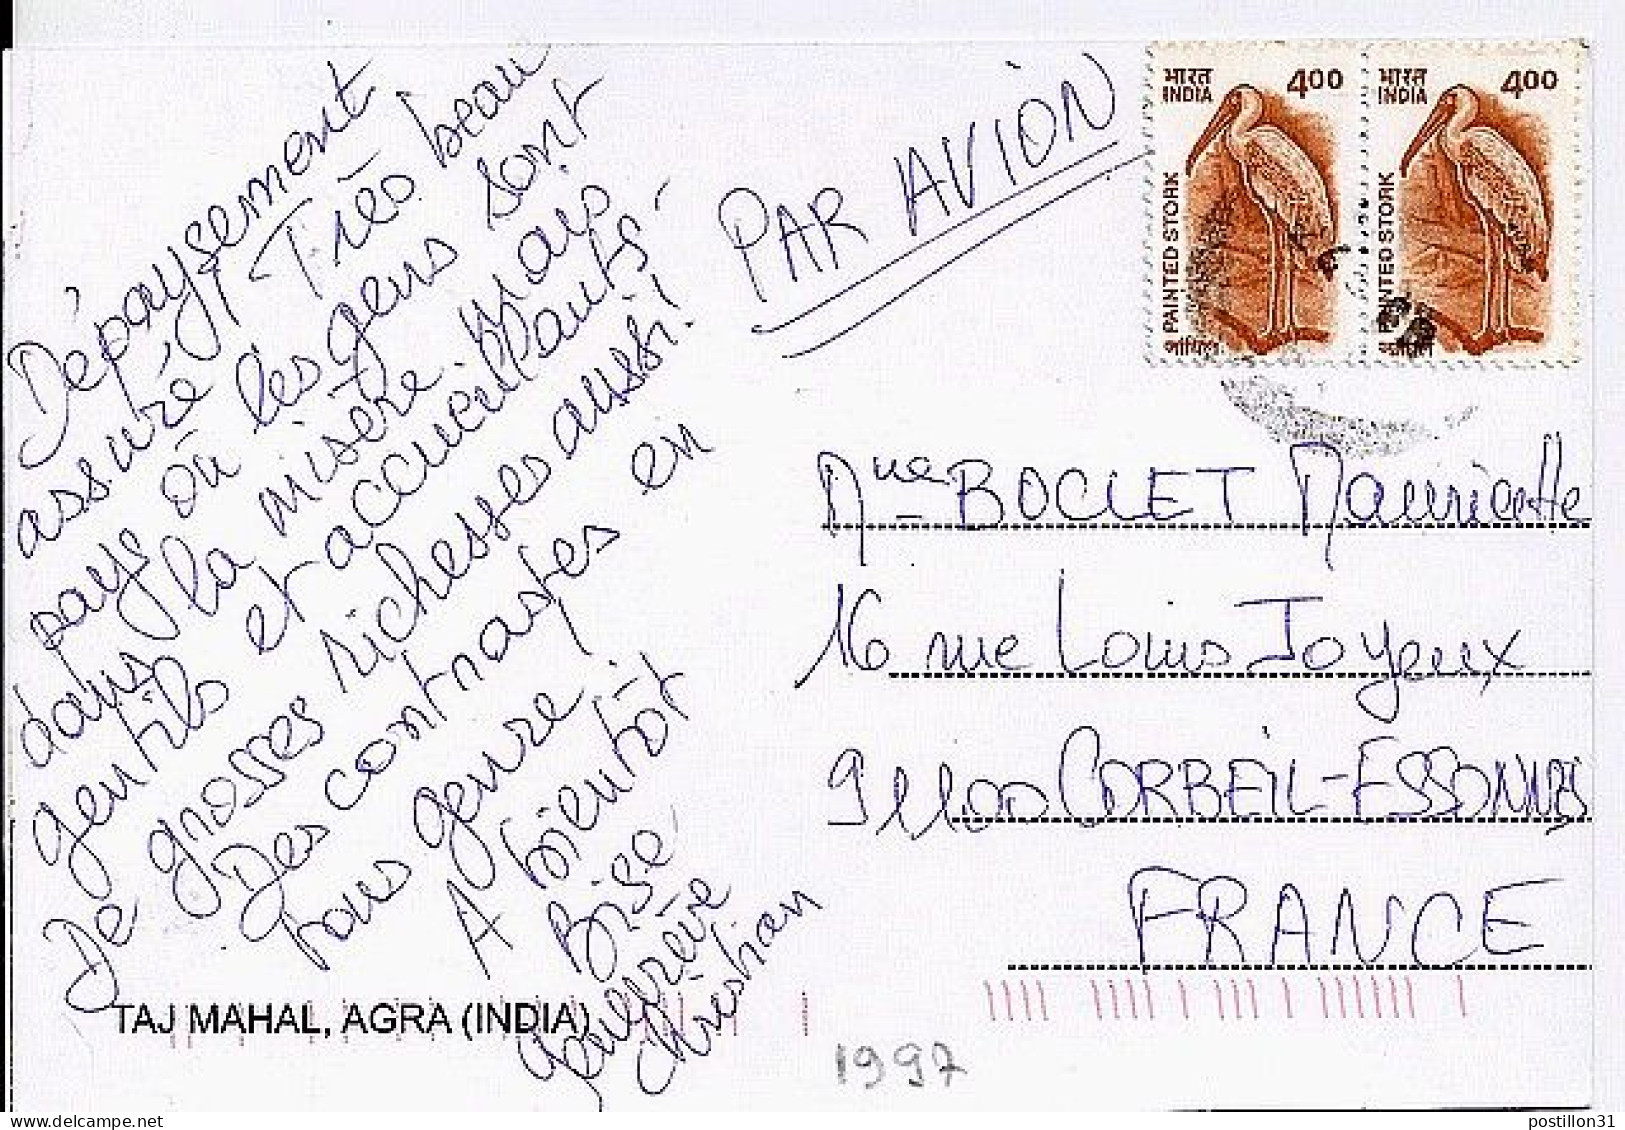 Dépaysement
assuré ! Très beau
pays où les gens sont
dans la misère mais
gentils et accueillants -
De grosses richesses aussi !
Des contrastes en
tous genre.
A bientôt
Bise.
Geneviève
Christian
PAR AVION
भारत
INDIA
4.00
PAINTED STORK
जांघिल
भारत
INDIA
4.00
PAINTED STORK
जांघिल
Mme BOCLET Mauricette
16 rue Louis Joyeux
91100 CORBEIL-ESSONNES
FRANCE
TAJ MAHAL, AGRA (INDIA)
1997
postillon31